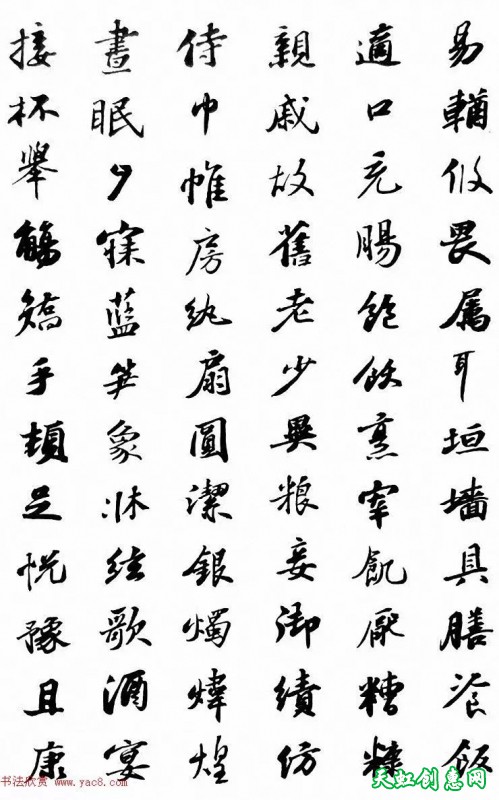 易輶攸畏属耳垣墙具膳飡飯
適口充腸飽飫烹宰飢厭糟糠
親戚故舊老少異粮妾御績紡
侍巾帷房紈扇圓潔銀燭煒煌
晝眠夕寐藍笋象牀絃歌酒宴
接杯舉觴矯手頓足悦豫且康
书法欣赏 www.yac8.com
天虹创意网